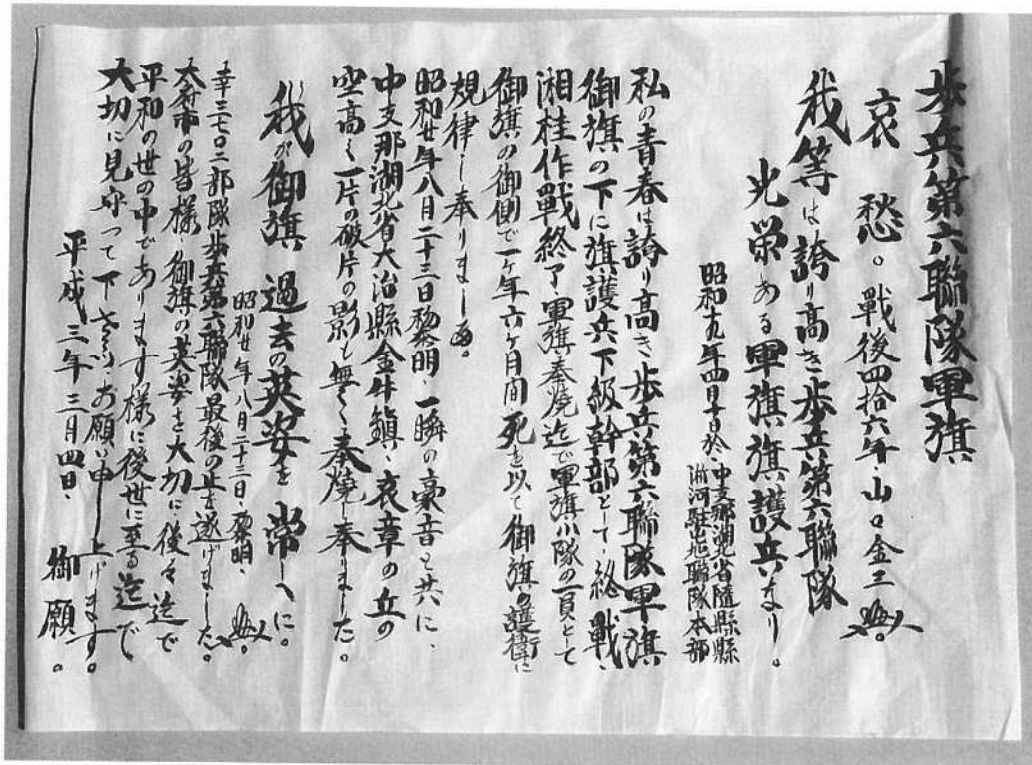 歩兵第六聯隊軍旗
哀愁。戰後四拾六年・山口金三
我等は誇り高き歩兵第六聯隊
光栄ある軍旗旗護兵なり。
昭和十九年四月十日於、中支那湖北省隨縣縣
淅河駐屯聯隊本部
私の青春は誇り高き歩兵第六聯隊軍旗
御旗の下に旗護兵下級幹部として・終戰、
湘桂作戰終了軍旗奉燒迄で軍旗小隊の一員として
御旗の御側で一ヶ年六ヶ月間、死を以て御旗の護衛に
規律し奉りました。
昭和廿年八月二十三日黎明、一瞬の豪音と共に、
中支那湖北省大治縣金牛鎮、哀章の丘の
空高く一片の破片の影も無く奉燒し奉りました。
我が御旗過去の英姿を常しへに。
昭和廿年八月二十三日、黎明、
幸三七〇二部隊歩兵第六聯隊最後の止を遂げました。
大府市の皆様・御旗の英姿を大切に後々迄で
平和の世の中であります様に後世に至る迄で
大切に見守って下さる様お願い申し上げます。
平成三年三月四日、御願。